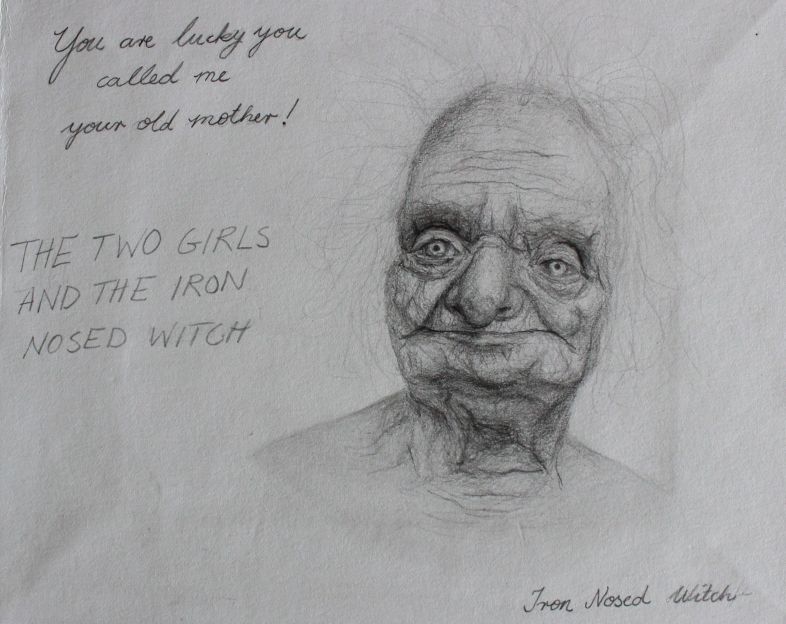 You are lucky you
called me
your old mother!
THE TWO GIRLS
AND THE IRON
NOSED WITCH
Iron Nosed Witch